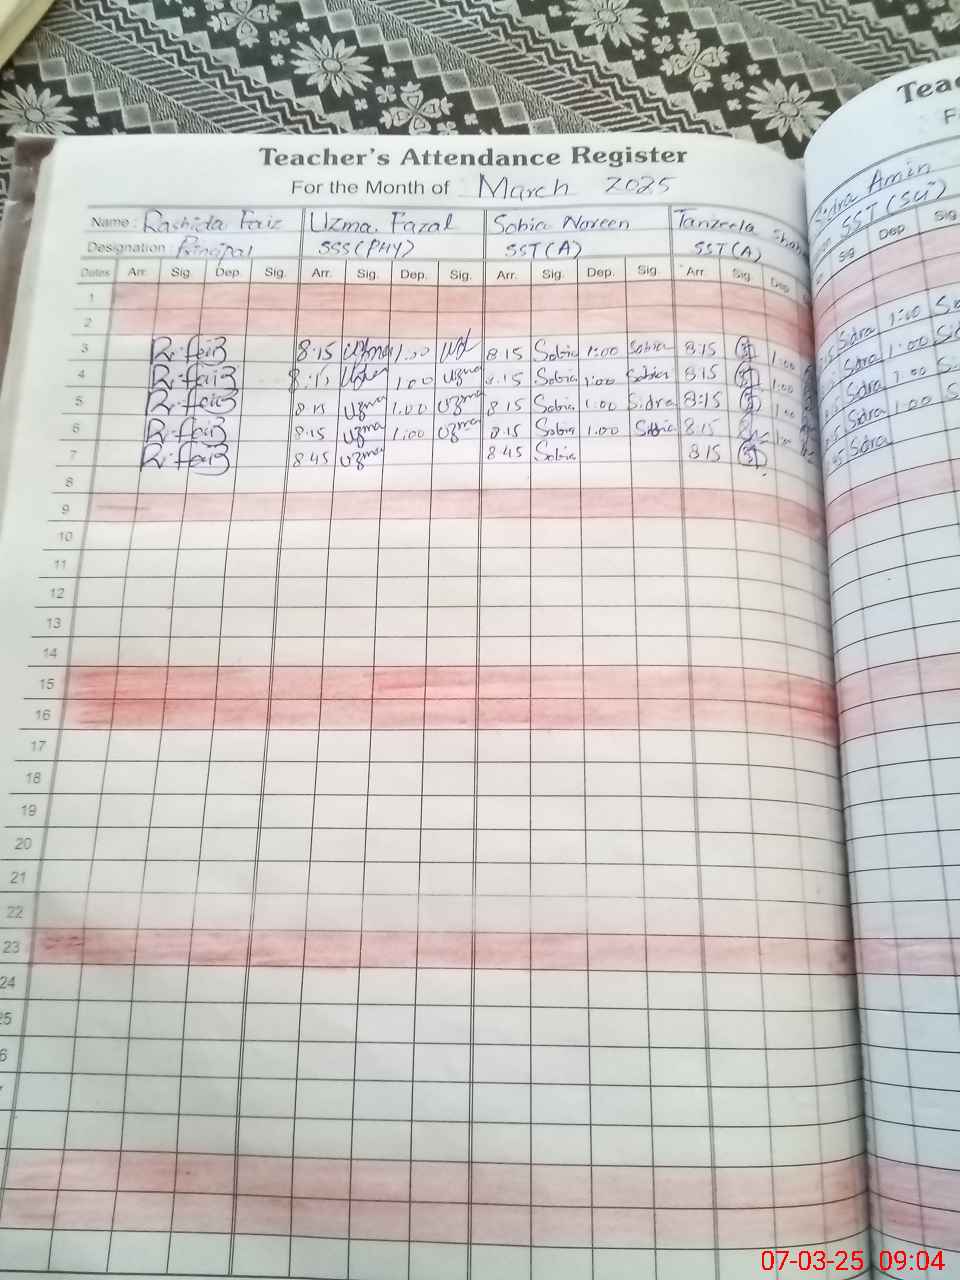 Teacher's Attendance Register
For the Month of March 2025
Name : Rashida Faiz Uzma Fazal Sobia Noreen Tanzeela
Designation : Principal SSS (PHY) SST (A) SST (A)
Dates Arr. Sig. Dep. Sig. Arr. Sig. Dep. Sig. Arr. Sig. Dep. Sig. Arr. Sig. Dep.
1
2
3 R.faiz 8:15 Uzma 1:00 8:15 Sobia 1:00 Sobia 8:15 1:00
4 R.faiz 1:00 Uzma Sobia 1:00 Sobia 8:15 1:00
5 R.faiz 8:15 Uzma 1:00 Uzma 8:15 Sobia 1:00 Sidra 8:15
6 R.faiz 8:15 Uzma 1:00 Uzma 8:15 Sobia 1:00 Sobia 8:15
7 R.faiz 8:45 Uzma 8:45 Sobia 8:15
8
9
10
11
12
13
14
15
16
17
18
19
20
21
22
23
24
Sidra Amin
SST (Sci)
Sig Dep Sig
Sidra 1:00
Sidra 1:00
Sidra 1:00
Sidra 1:00
Sidra
07-03-25 09:04